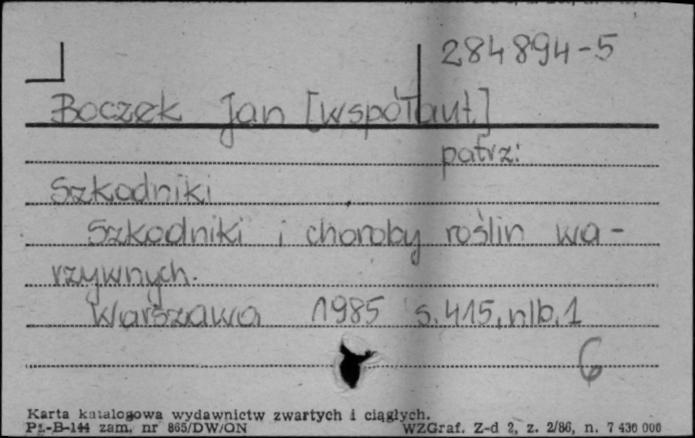 284894-5
Boczek Jan [współaut.]
patrz:
Szkodniki
Szkodniki i choroby roślin wa-
rzywnych.
Warszawa 1985 s. 415, nlb. 1
6
Karta katalogowa wydawnictw zwartych i ciągłych.
Pż-B-144 zam. nr 865/DW/ON WZGraf. Z-d 2, z. 2/86, n. 7 430 000